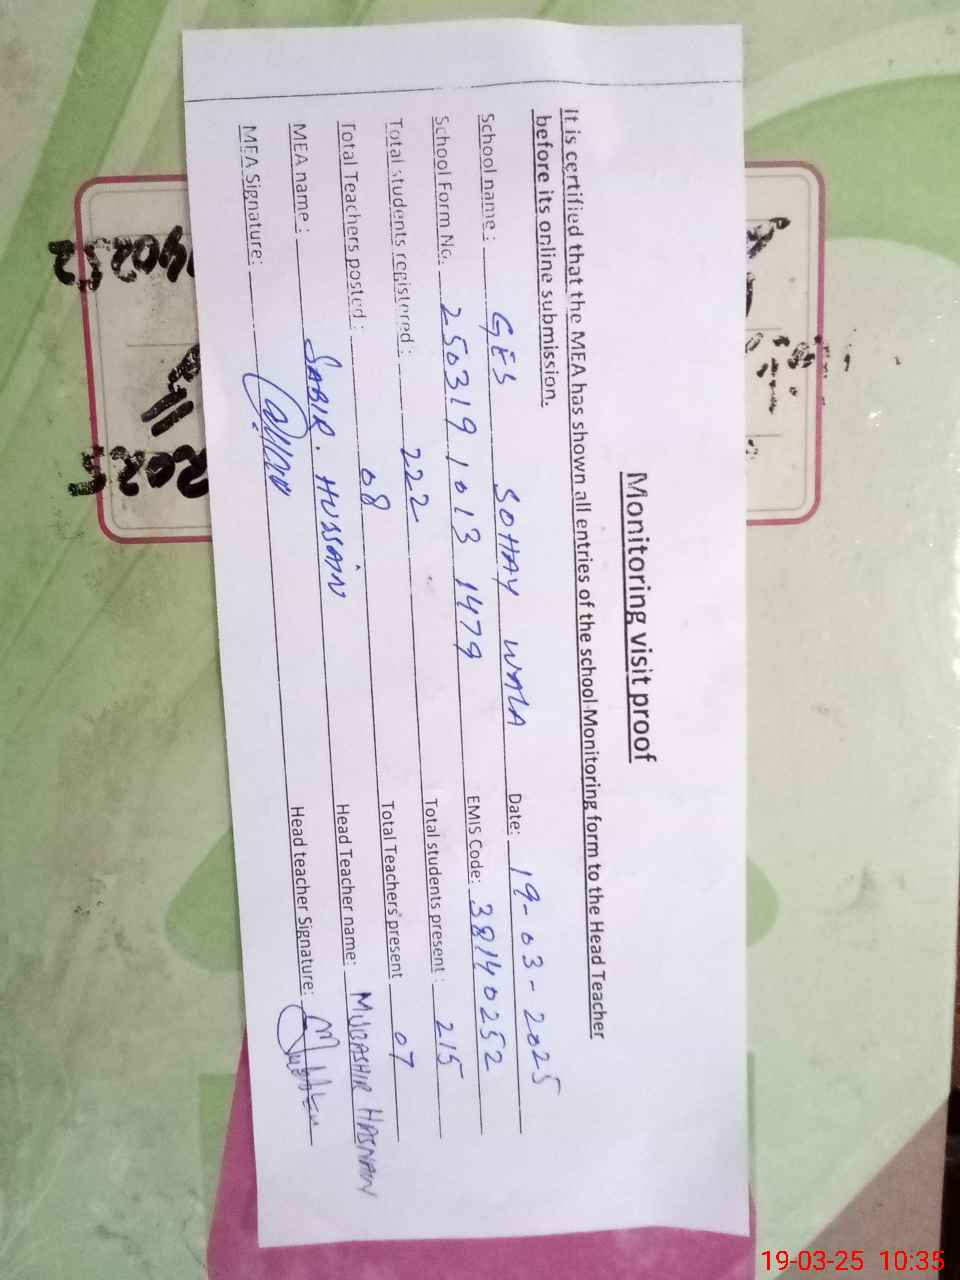 Monitoring visit proof
It is certified that the MEA has shown all entries of the school-Monitoring form to the Head Teacher
before its online submission.
School name: GES SOHAY WALA Date: 19-03-2025
School Form No. 250319 1013 1479 EMIS Code: 38140252
Total students registered: 222 Total students present: 215
Total Teachers posted: 08 Total Teachers' present 07
MEA name: SABIR. HUSSAIN Head Teacher name: MUBASHIR HASNAIN
MEA Signature: Head teacher Signature:
2025
19-03-25 10:35